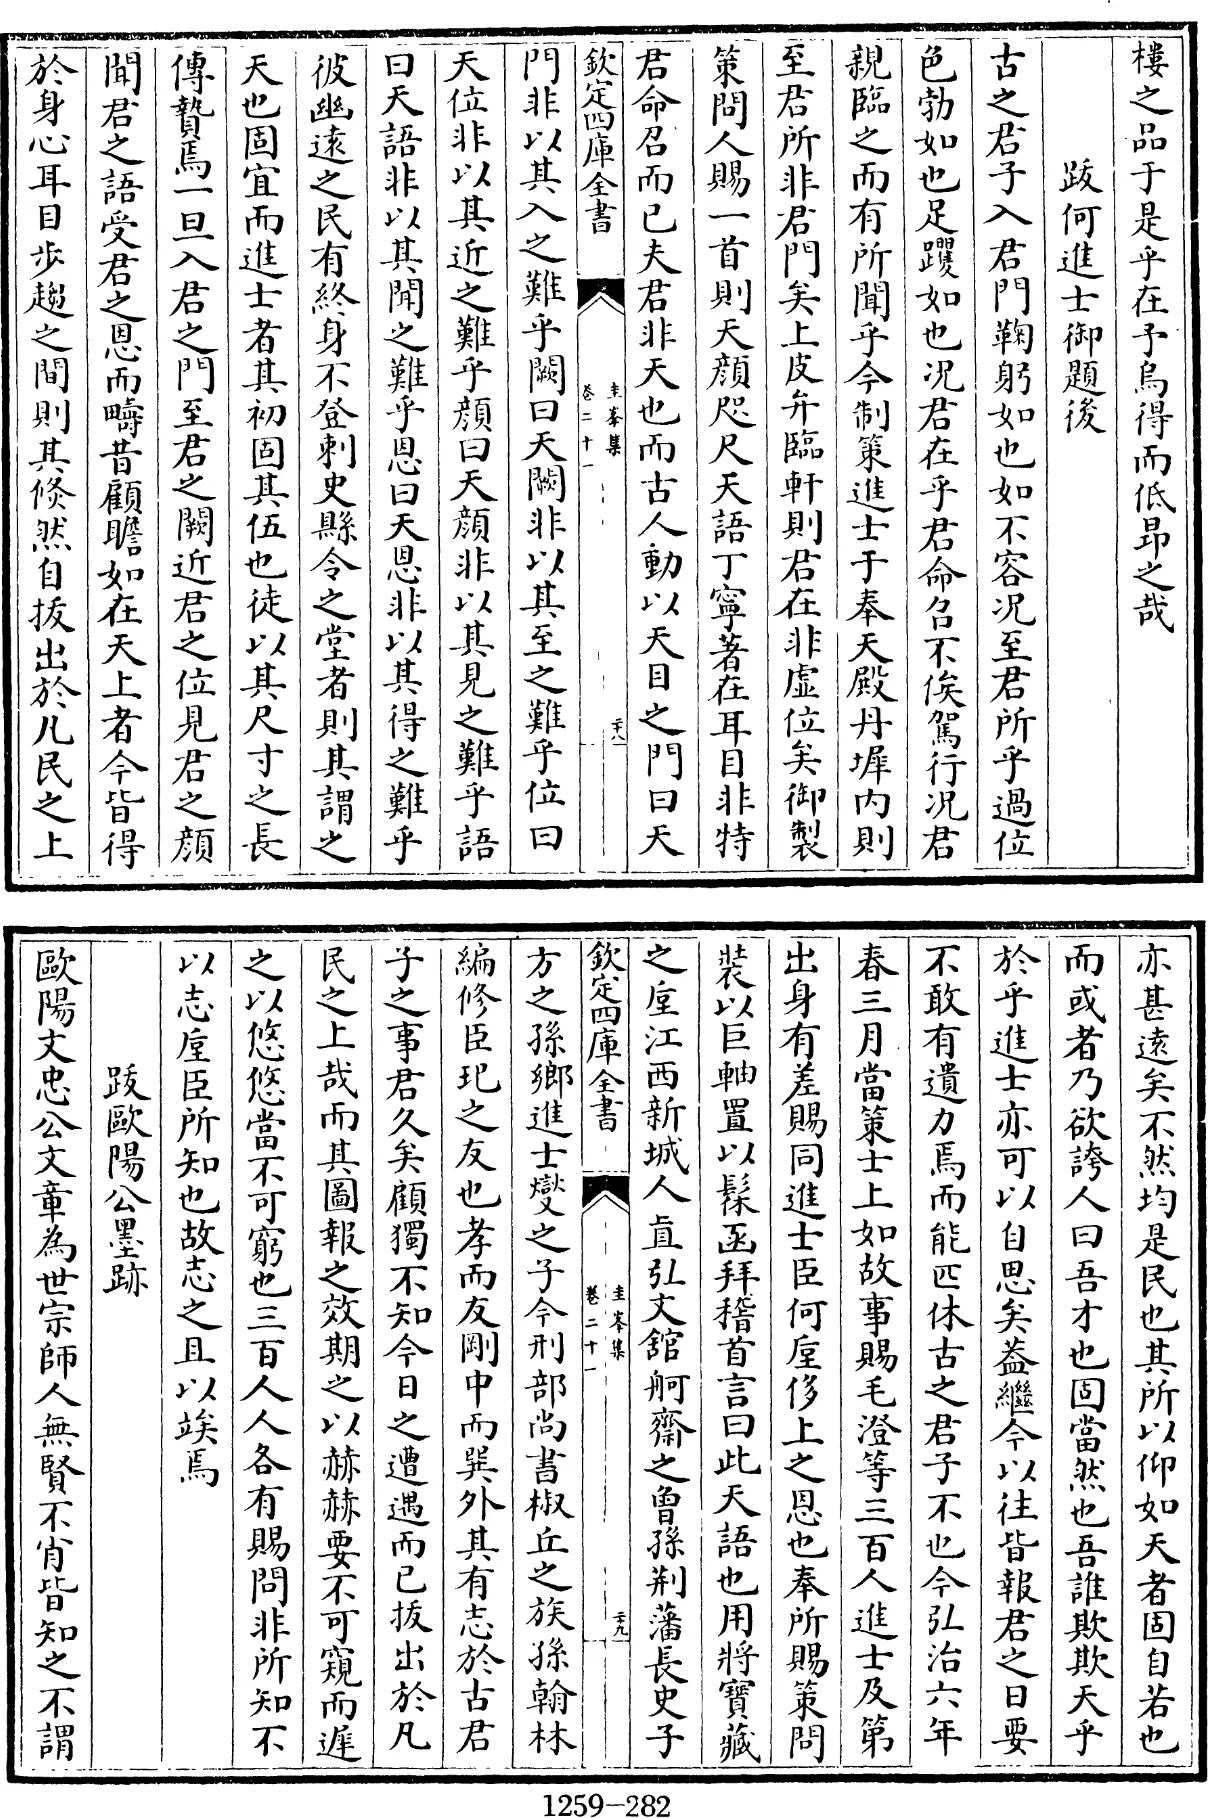 樓之品于是乎在予烏得而低昻之哉
跋何進士御題後
古之君子入君門鞠躬如也如不容况至君所乎過位
色勃如也足躩如也况君在乎君命召不俟駕行况君
親臨之而有所聞乎今制策進士于奉天殿丹墀内則
至君所非君門矣上皮弁臨軒則君在非虛位矣御製
策問人賜一首則天顔咫尺天語丁寧著在耳目非特
君命召而已夫君非天也而古人動以天目之門曰天
欽定四庫全書
圭峯集
卷二十一
二十八
門非以其入之難乎闕曰天闕非以其至之難乎位曰
天位非以其近之難乎顔曰天顔非以其見之難乎語
曰天語非以其聞之難乎恩曰天恩非以其得之難乎
彼幽遠之民有終身不登刺史縣令之堂者則其謂之
天也固宜而進士者其初固其伍也徒以其尺寸之長
傳贄焉一旦入君之門至君之闕近君之位見君之顔
聞君之語受君之恩而疇昔顧瞻如在天上者今皆得
於身心耳目步趨之間則其倐然自拔出於凡民之上
亦甚遠矣不然均是民也其所以仰如天者固自若也
而或者乃欲誇人曰吾才也固當然也吾誰欺欺天乎
於乎進士亦可以自思矣葢繼今以往皆報君之日要
不敢有遺力焉而能匹休古之君子不也今弘治六年
春三月當策士上如故事賜毛澄等三百人進士及第
出身有差賜同進士臣何垕侈上之恩也奉所賜策問
裝以巨軸置以髹函拜稽首言曰此天語也用將寶藏
之垕江西新城人直弘文舘舸齋之曾孫荆藩長史子
欽定四庫全書
圭峯集
卷二十一
二十九
方之孫鄉進士燮之子今刑部尚書椒丘之族孫翰林
編修臣玘之友也孝而友剛中而巽外其有志於古君
子之事君久矣顧獨不知今日之遭遇而已拔出於凡
民之上哉而其圖報之效期之以赫赫要不可窺而遲
之以悠悠當不可窮也三百人人各有賜問非所知不
以志垕臣所知也故志之且以竢焉
跋歐陽公墨跡
歐陽文忠公文章為世宗師人無賢不肖皆知之不謂
1259-282